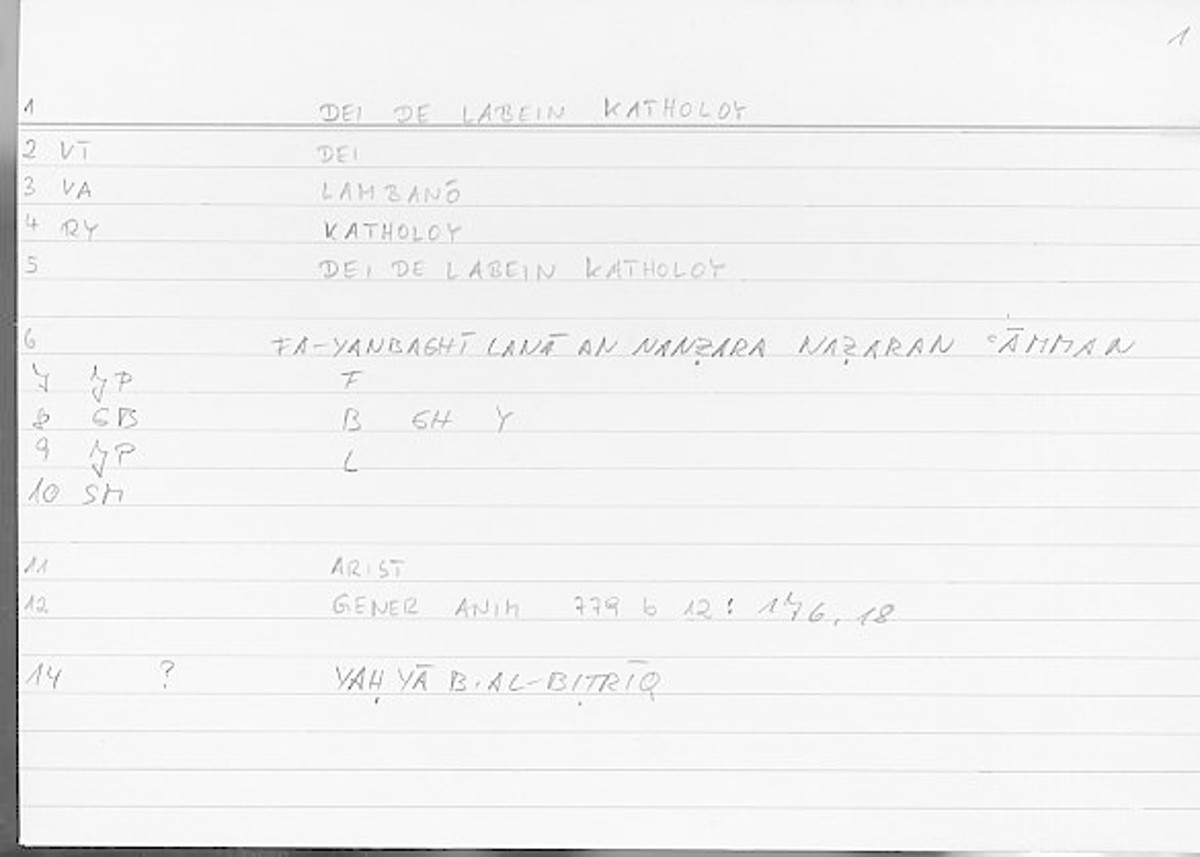 1
1 DEI DE LABEIN KATHOLOY
2 VT DEI
3 VA LAMBANŌ
4 RY KATHOLOY
5 DEI DE LABEIN KATHOLOY
6 FA-YANBAGHĪ LANĀ AN NANẒARA NAẒARAN ʿĀMMAN
7 JP F
8 GB B GH Y
9 JP L
10 SM
11 ARIST
12 GENER ANIM 779 b 12 : 176, 18
14 ? YAḤYĀ B. AL-BIṬRĪQ